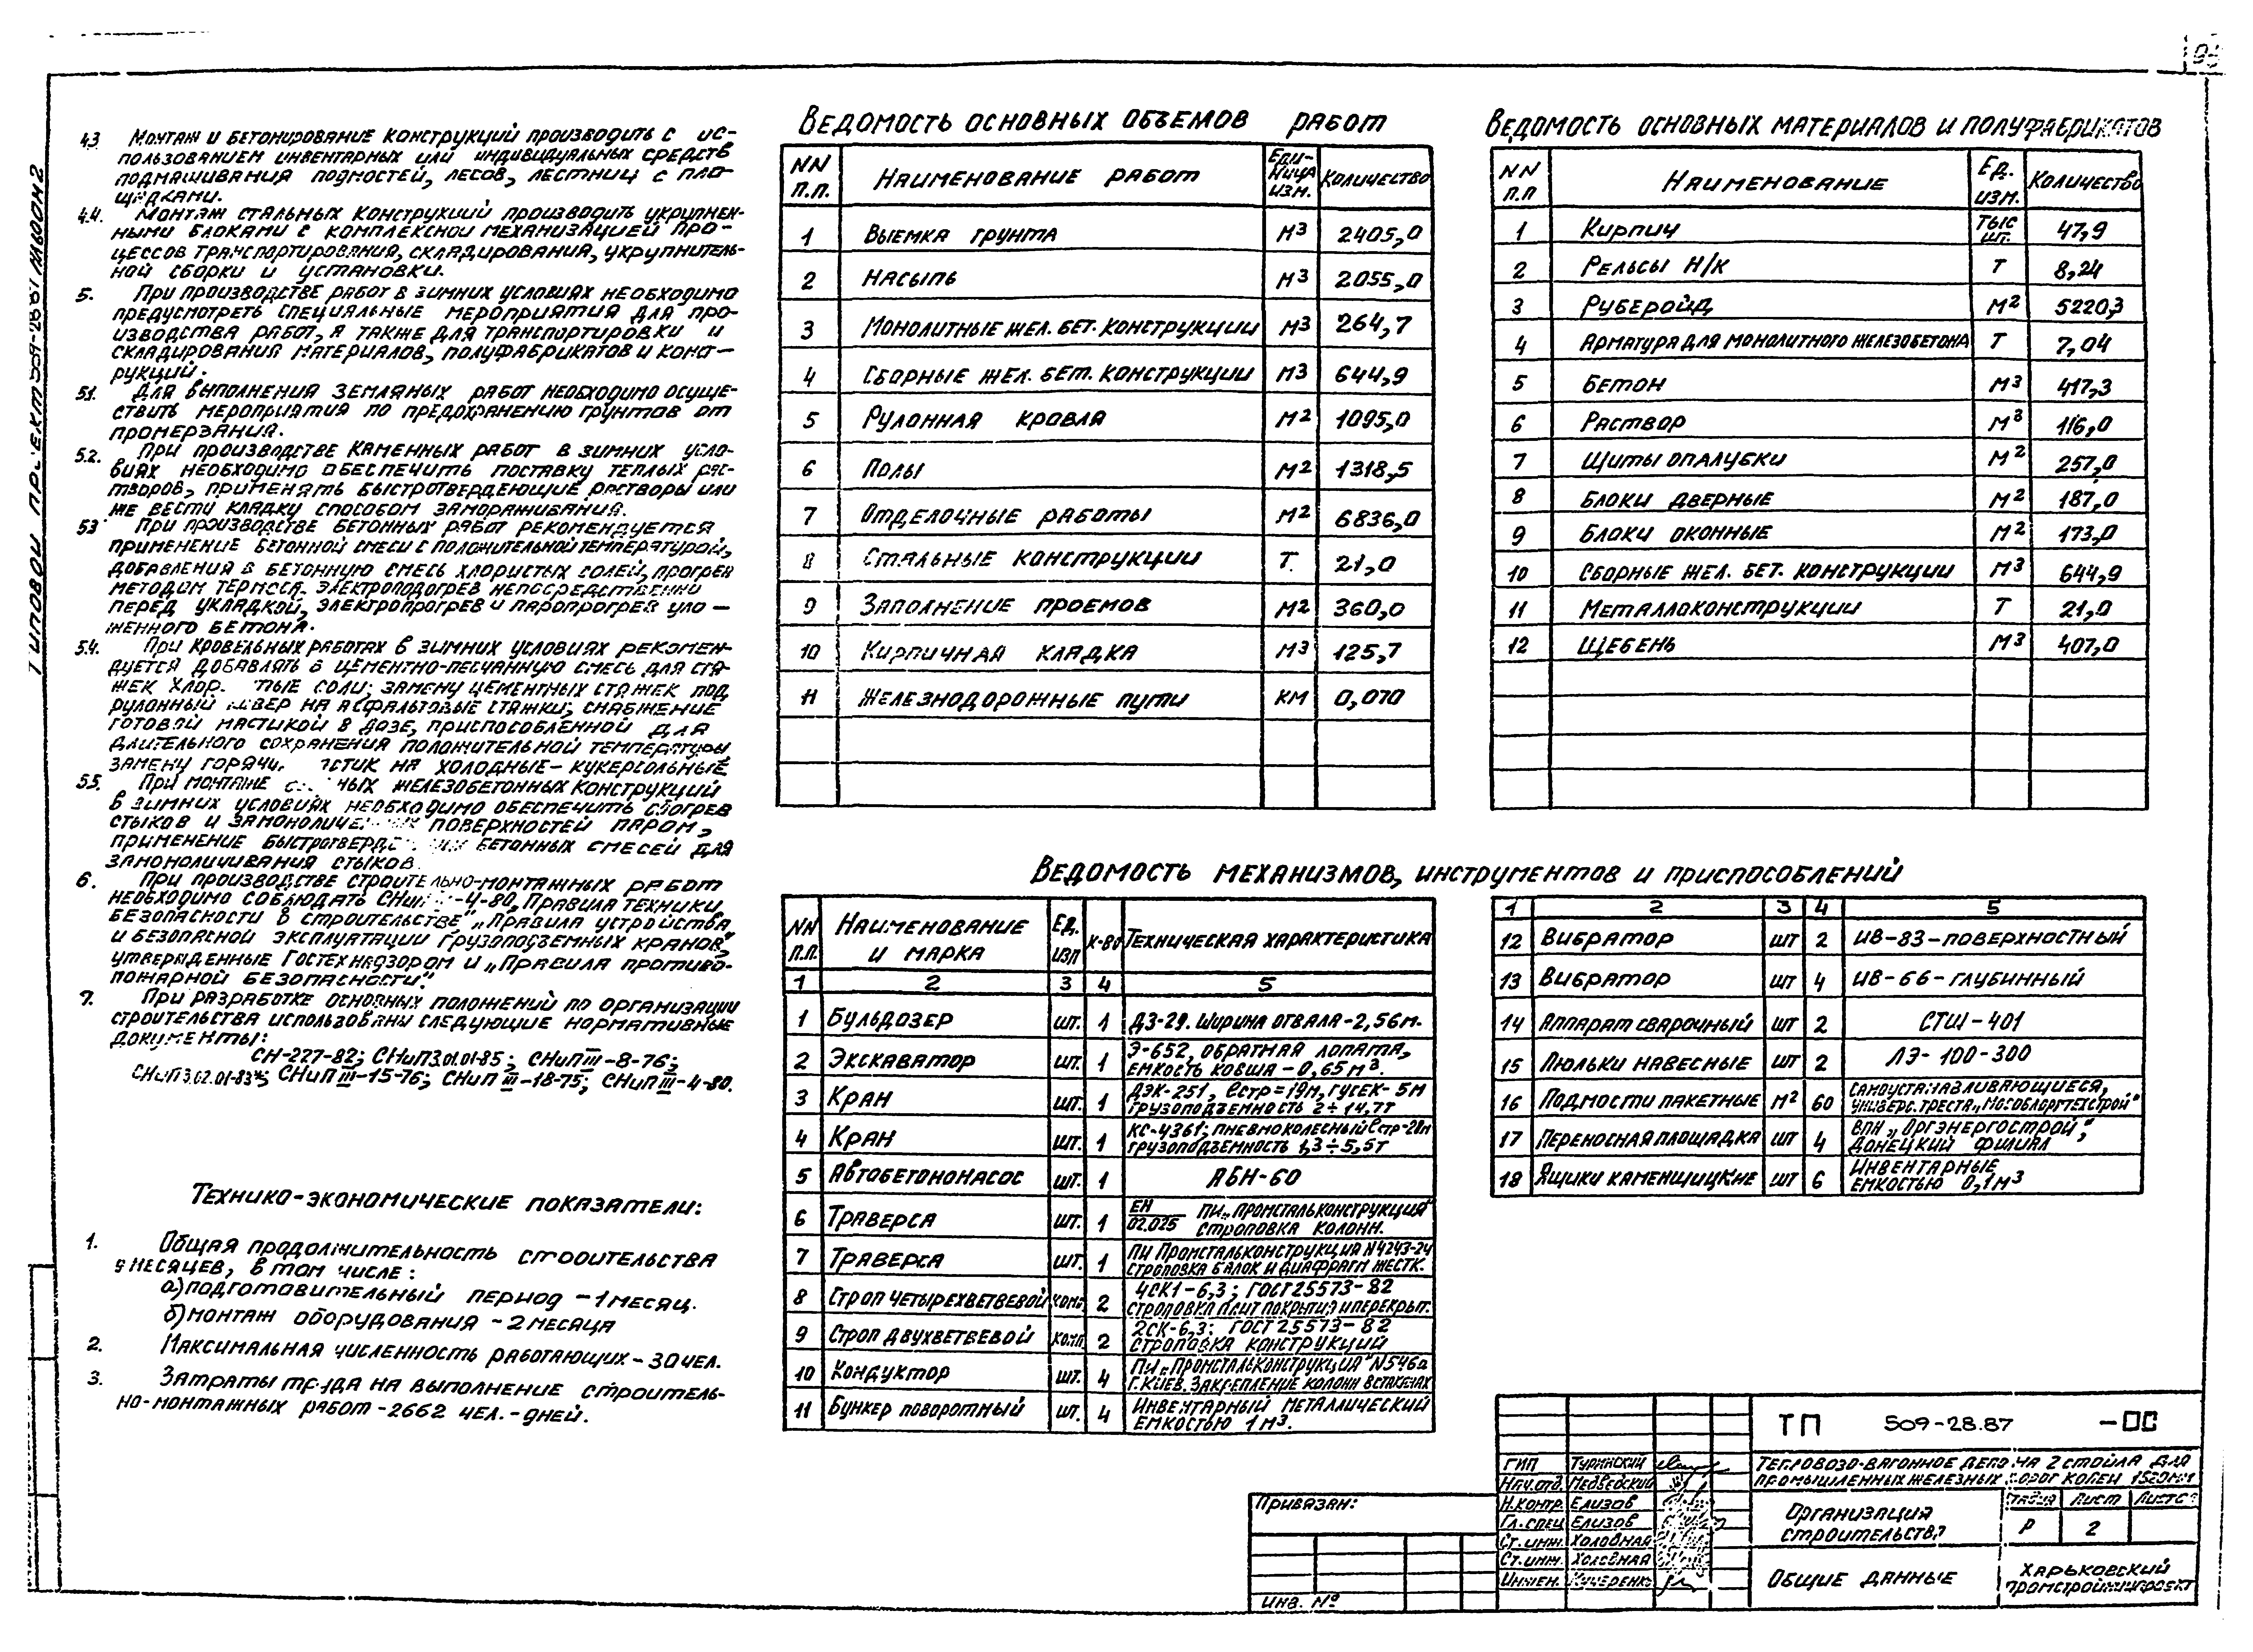 4.3 Монтаж и бетонирование конструкций производить с ис-
пользованием инвентарных или индивидуальных средств
подмащивания подмостей, лесов, лестниц с пло-
щадками.
4.4. Монтаж стальных конструкций производить укрупнен-
ными блоками с комплексной механизацией про-
цессов транспортирования, складирования, укрупнитель-
ной сборки и установки.
5. При производстве работ в зимних условиях необходимо
предусмотреть специальные мероприятия для про-
изводства работ, а также для транспортировки и
складирования материалов, полуфабрикатов и конст-
рукций.
5.1. Для выполнения земляных работ необходимо осуще-
ствить мероприятия по предохранению грунтов от
промерзания.
5.2. При производстве каменных работ в зимних усло-
виях необходимо обеспечить поставку теплых рас-
творов, применять быстротвердеющие растворы или
же вести кладку способом замораживания.
5.3 При производстве бетонных работ рекомендуется
применение бетонной смеси с положительной температурой,
добавления в бетонную смесь хлористых солей, прогрев
методом термоса, электроподогрев непосредственно
перед укладкой, электропрогрев и паропрогрев уло-
женного бетона.
5.4. При кровельных работах в зимних условиях рекомен-
дуется добавлять в цементно-песчанную смесь для стя-
жек соли; замену цементных стяжек под
рулонный на асфальтовые стяжки; снабжение
готовой мастикой в дозе, приспособленной для
длительного сохранения положительной температуры,
замену на холодные-кукерсольные
5.5. При монтаже железобетонных конструкций
в зимних условиях необходимо обеспечить обогрев
стыков и поверхностей паром,
применение бетонных смесей для
замоноличивания стыков.
6. При производстве строительно-монтажных работ
необходимо соблюдать СНиП -4-80, Правила техники
безопасности в строительстве", „Правила устройства
и безопасной эксплуатации грузоподъемных кранов",
утвержденные Гостехнадзором и „Правила противо-
пожарной безопасности".
7. При разработке основных положений по организации
строительства использованы следующие нормативные
документы:
СН-227-82; СНиП 3.01.01-85; СНиП III-8-76;
СНиП 3.02.01-83*; СНиП III-15-76; СНиП III-18-75; СНиП III-4-80.
Технико-экономические показатели:
1. Общая продолжительность строительства
9 месяцев, в том числе:
а) подготовительный период - 1 месяц.
б) монтаж оборудования - 2 месяца
2. Максимальная численность работающих - 30 чел.
3. Затраты труда на выполнение строитель-
но-монтажных работ - 2662 чел.-дней.
Ведомость основных объемов работ
NN п.п. Наименование работ Еди-ница изм. Количество
1 Выемка грунта м3 2405,0
2 Насыпь м3 2055,0
3 Монолитные жел. бет. конструкции м3 264,7
4 Сборные жел. бет. конструкции м3 644,9
5 Рулонная кровля м2 1095,0
6 Полы м2 1318,5
7 Отделочные работы м2 6836,0
8 Стальные конструкции т. 21,0
9 Заполнение проемов м2 360,0
10 Кирпичная кладка м3 125,7
11 Железнодорожные пути км 0,070
Ведомость основных материалов и полуфабрикатов
NN п.п Наименование Ед. изм. Количество
1 Кирпич тыс шт. 47,9
2 Рельсы Н/К т 8,24
3 Рубероид м2 5220,3
4 Арматура для монолитного железобетона т 7,04
5 Бетон м3 417,3
6 Раствор м3 116,0
7 Щиты опалубки м2 257,0
8 Блоки дверные м2 187,0
9 Блоки оконные м2 173,0
10 Сборные жел. бет. конструкции м3 644,9
11 Металлоконструкции т 21,0
12 Щебень м3 407,0
Ведомость механизмов, инструментов и приспособлений
NN п.п. Наименование и марка Ед. изм К-во Техническая характеристика
1 2 3 4 5
1 Бульдозер шт. 1 ДЗ-29. Ширина отвала-2,56м.
2 Экскаватор шт. 1 Э-652, обратная лопата,
емкость ковша - 0,65м3.
3 Кран шт. 1 ДЭК-251, ℓстр=19м, гусек-5м
грузоподъемность 2÷14,7т
4 Кран шт. 1 КС-4361; пневмоколесный ℓстр-20м
грузоподъемность 1,3÷5,5т
5 Автобетононасос шт. 1 АБН-60
6 Траверса шт. 1 ЕН 02.025 ПИ „Промстальконструкция"
строповка колонн.
7 Траверса шт. 1 ПИ Промстальконструкция N4243-24
строповка балок и диафрагм жестк.
8 Строп четырехветвевой комп. 2 4СК1-6,3; ГОСТ 25573-82
строповка плит покрытия и перекрыт.
9 Строп двухветвевой комп. 2 2СК-6,3; ГОСТ 25573-82
строповка конструкций
10 Кондуктор шт. 4 ПИ „Промстальконструкция" N546а
г. Киев. Закрепление колонн в стаканах
11 Бункер поворотный шт. 4 Инвентарный металлический
емкостью 1м3.
1 2 3 4 5
12 Вибратор шт 2 ИВ-83-поверхностный
13 Вибратор шт 4 ИВ-66-глубинный
14 Аппарат сварочный шт 2 СТШ-401
15 Люльки навесные шт 2 ЛЭ-100-300
16 Подмости пакетные м2 60 Самоустанавливающиеся,
универс. треста „Мособлоргтехстрой"
17 Переносная площадка шт 4 ВПН „Оргэнергострой",
Донецкий филиал
18 Ящики каменщицкие шт 6 Инвентарные
емкостью 0,1м3
ТП 509-28.87 -ОС
Тепловозо-вагонное депо на 2 стойла для
промышленных железных дорог колеи 1520мм
ГИП Туринский
Нач.отд. Медведский
Н.контр. Елизов
Гл.спец Елизов
Ст.инж. Холодная
Ст.инж. Холодная
Инжен. Кучеренко
Организация
строительства
Стадия Лист Листов
Р 2
Общие данные
Харьковский
Промстройниипроект
Привязан:
Инв. №